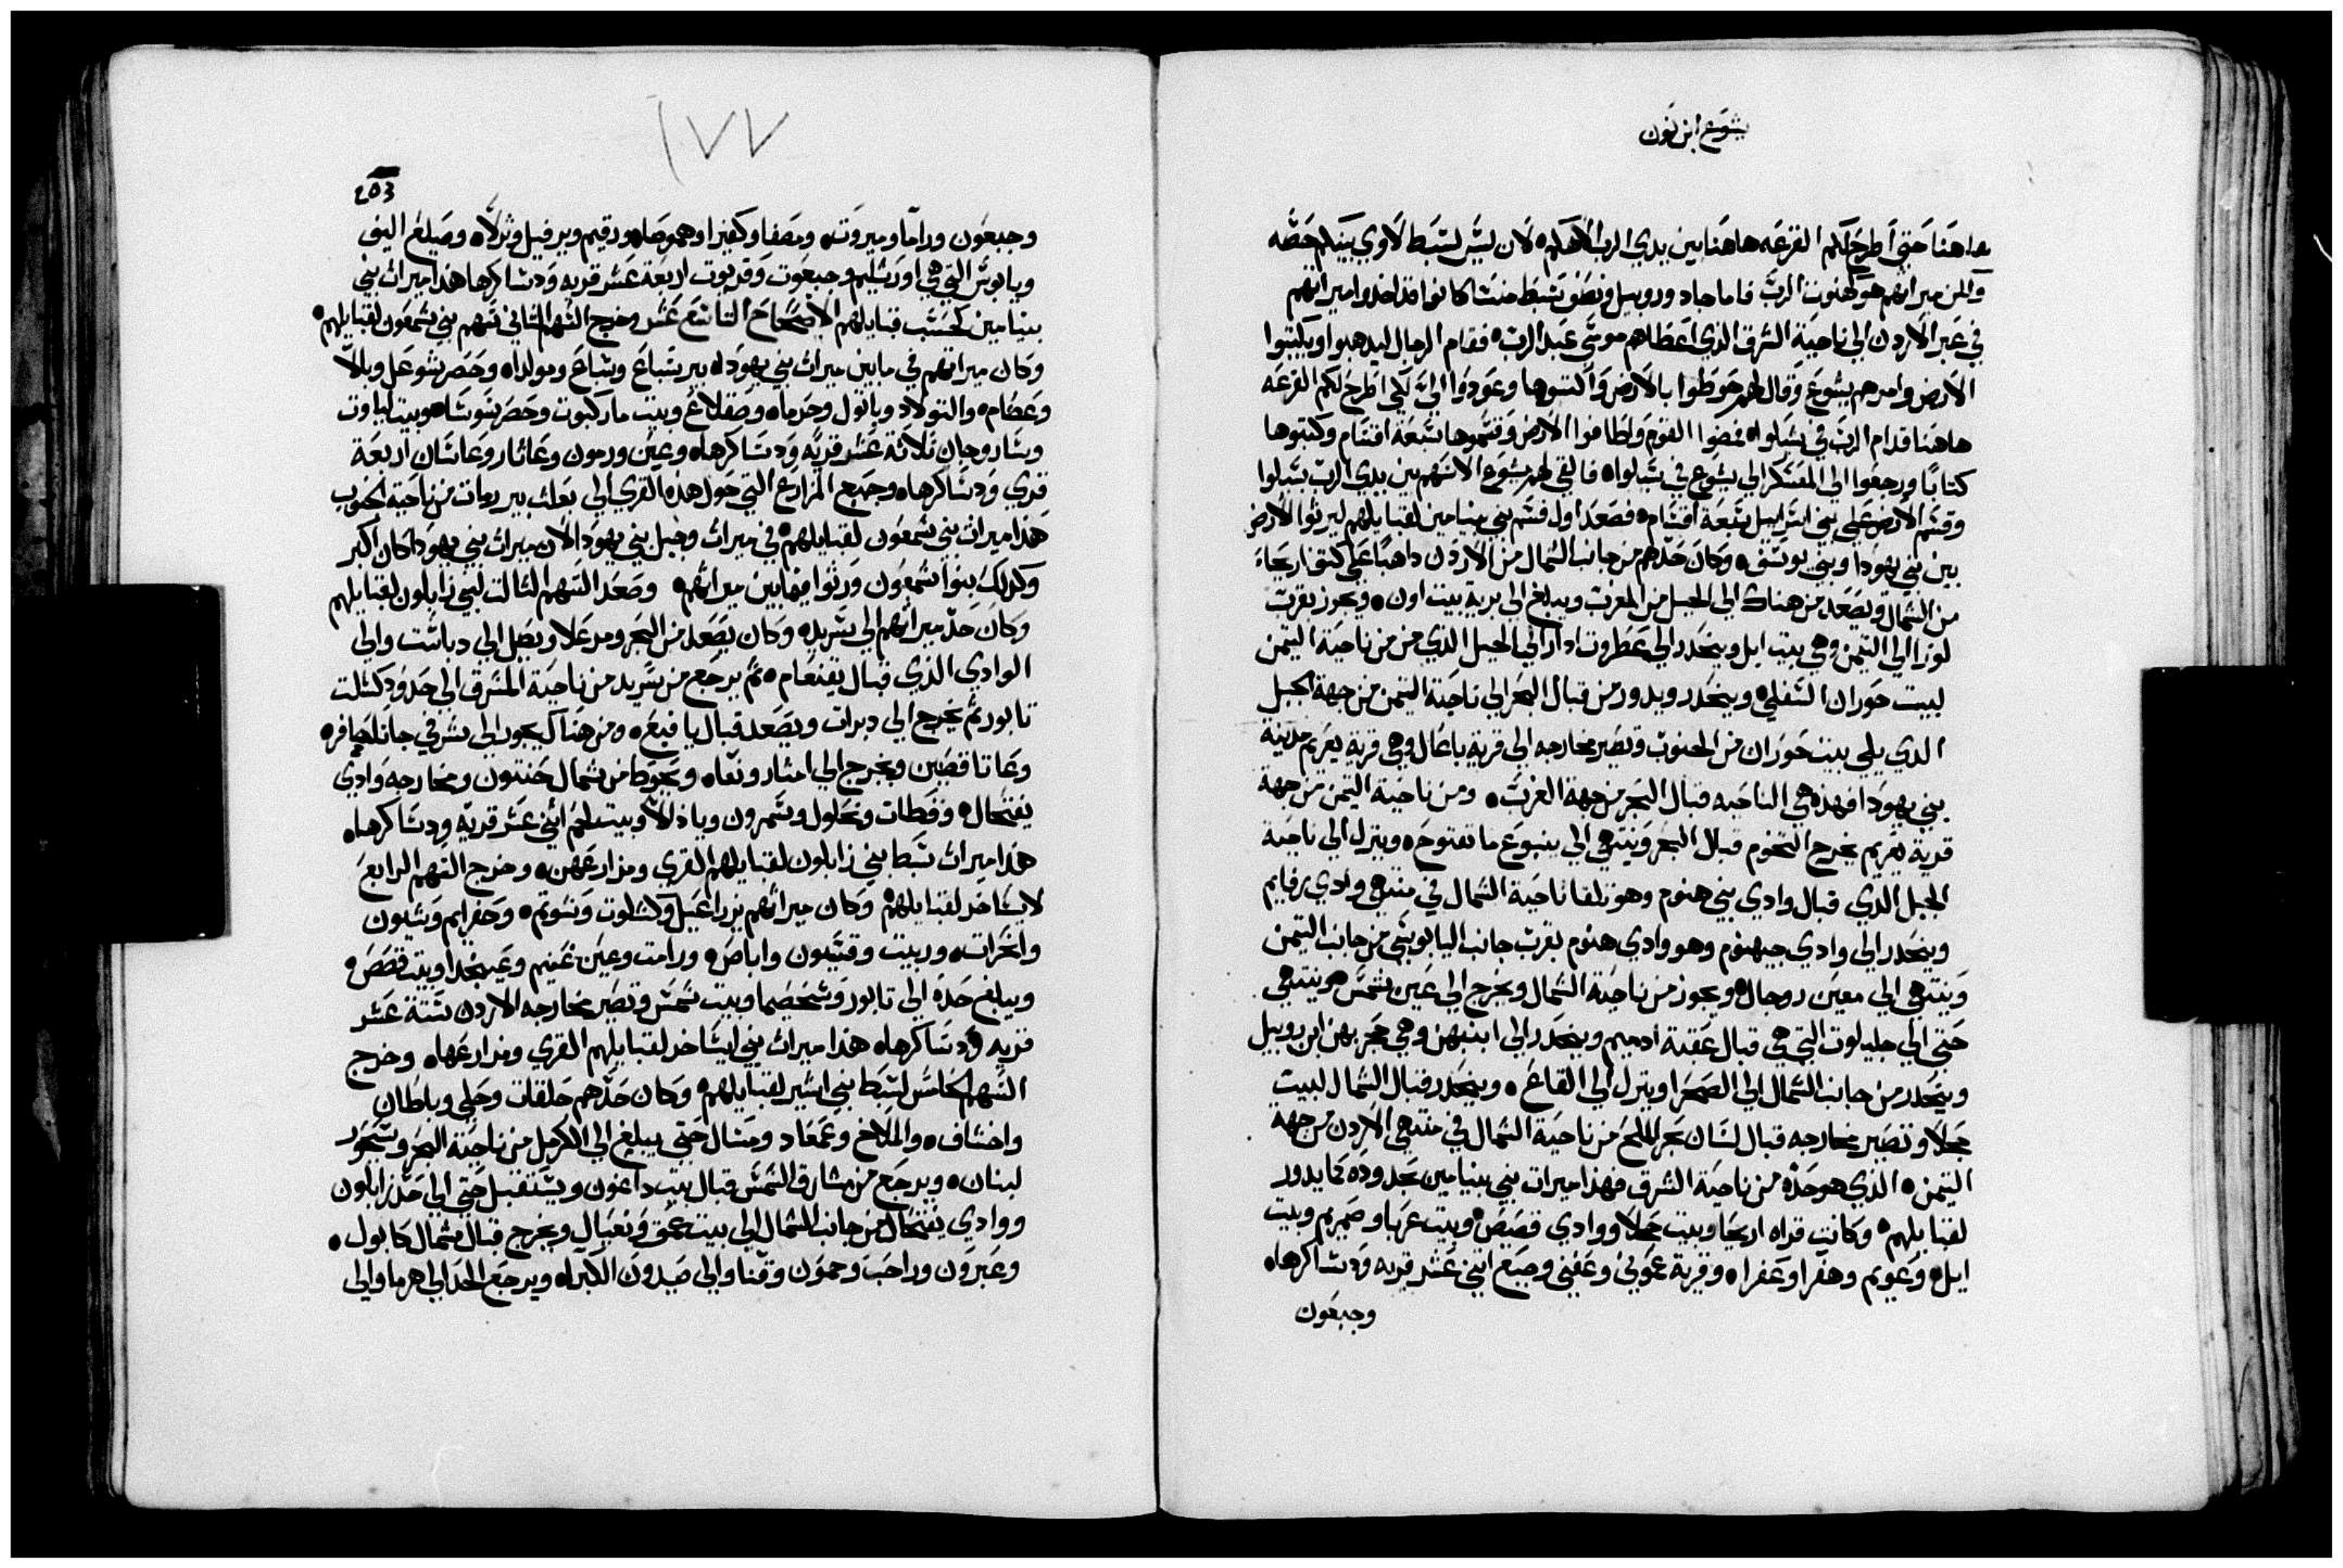 يشوع ابن نون
هاهنا حتى اطرح لكم القرعه هاهنا بين يدي الرب الاهكم لان ليس لسبط لاوي بينكم حصه
والمن ميراثهم هو كهنوت الرب فاما جاد وروبيل ونصف سبط منسا كانوا قد اخذوا ميراثهم
في عبر الاردن الى ناحية الشرق الذي اعطاهم موسى عبد الرب فقام الرجال ليذهبوا ويكتبوا
الارض وامرهم يشوع وقال لهم حوطوا بالارض واكتبوها وعودوا الىّ لكي اطرح لكم القرعه
هاهنا قدام الرب في شيلواه فمضوا القوم وطافوا الارض وقسموها سبعة اقسام وكتبوها
كتابًا ورجعوا الى المعسكر الي يشوع في شيلواه فالقي لهم يشوع الاسهم بين يدي الرب بشيلوا
وقسم الارض على بني اسرايل سبعة اقسام فصعد اول قسم بني بنيامين لقبايلهم ليرثوا الارض
بين بني يهودا وبني يوسف وكان حدهم من جانب الشمال من الاردن داهبًا على كتف اريحاء
من الشمال ويصعد من هناك الى الجبل من المغرب ويبلغ الى برية بيت اون ويجوز بقرب
لوزا الي التيمن وهي بيت ايل وينحدر الي عطروت ادار الي الجبل الذي من ناحية التيمن
لبيت حوران السفلي وينحدر ويدور من قبال البحر الي ناحية التيمن من جهة الجبل
الدي يلي بيت حوران من الجنوب وتصير مخارجه الى قرية باعال وهي قرية يعريم مدينة
بني يهودا فهذه هي الناحيه قبال البحر من جهة الغرب ومن ناحية التيمن من جهة
قرية يعريم يخرج التخوم قبال البحر وينتهي الي ينبوع ما نفتوحه وينزل الي ناحية
الجبل الدي قبال وادي بني هنوم وهو تلقا ناحية الشمال في منتهى وادي رفايم
وينحدر الي وادي جيهنوم وهو وادي هنوم بقرب جانب اليابوسي من جانب التيمن
وينتهي الي معين روجال ويجوز من ناحية الشمال ويخرج الي عين شمس وينتهي
حتى الي جليلوت التي هي قبال عقبة ادميم وينحدر الي ابنبهن وهي حجر بهن ابن روبيل
وينحدر من جانب الشمال الي الصحرا وينزل الي القاع وينحدر قبال الشمال لبيت
حجلا وتصير مخارجه قبال لسان بحر الملح من ناحية الشمال في منتهي الاردن من جهة
التيمن الذي هو حده من ناحية الشرق فهذا ميراث بني بنيامين بحدوده كما يدور
لقبايلهم وكانت قراه اريحا وبيت حجلا ووادي قصيص وبيت عربا وصمريم وبيت
ايل وعويم وهفرا وعفراه وقرية عموني وعفني وجبع اثني عشر قريه ودساكرهاه
وجبعون
١٧٧
253
وجبعون وراما وبيروت ومصفا وكفيرا وهموصاه ورقيم ويرفيل وثرلاه وصيلع اليف
ويابوس التي هي اورشليم وجبعوت وقريوت اربعة عشر قريه ودساكرها هذا ميراث بني
بنيامين كحسب قبايلهم الاصحاح التاسع عشر وخرج السهم الثاني سهم بني شمعون لقبايلهم
وكان ميراثهم في ما بين ميراث بني يهوداه بير شباع وشباع ومولداه وحصر شوعل وبالا
وعظام والتولاد وباتول وحرماه وصقلاغ وبيت ماركبوت وحصر سوساه وبيت لباوت
وشاروحان ثلاثة عشر قريه ودساكرهاه وعين ورمون وعاثار وعاشان اربعة
قري ودساكرهاه وجميع المزارع التي حول هذه القري الي بعلت بير رمات من ناحية الجنوب
هذا ميراث بني شمعون لقبايلهم في ميراث وجبل بني يهودا لان ميراث بني يهودا كان اكبر
وكذلك بنوا شمعون ورثوا فيما بين ميراثهم وصعد السهم الثالث لبني زابلون لقبايلهم
وكان حد ميراثهم الي سريد وكان يصعد من البحر ومرعلا ويصل الي دباست والي
الوادي الذي قبال يقنعام ثم يرجع من سريد من ناحية المشرق الي حدود كسلت
تابور ثم يخرج الي دبرات ويصعد قبال يافيع ومن هناك يجوز الي شرقي جاتاحافره
وعاتا قصين ويخرج الي امثار ونعاه ويحوط من شمال حنتون ومخارجه وادي
يفتحال وقطات ونحلول وشمرون وياذلا وبيت لحم اثني عشر قرية ودساكرهاه
هذا ميراث سبط بني زابلون لقبايلهم القري ومزارعهن وخرج السهم الرابع
لايساخر لقبايلهم وكان ميراثهم يزراعيل وكسلوت وسونم وحفرايم وشيون
وانحرات وربيت وقسيون واباص ورامت وعين غنيم وعين حدا وبيت فصص
ويبلغ حده الي تابور وشخصيما وبيت شمس وتصير مخارجه الاردن ستة عشر
قريه ودساكرهاه هذا ميراث بني ايساخر لقبايلهم القري ومزارعهاه وخرج
السهم الخامس لسبط بني اشير لقبايلهم وكان حدهم حلقات وحلي وباطان
واخشاف والملاخ وعمعاد ومشال حتي يبلغ الي الكرمل من ناحية البحر وشيحور
لبنان ويرجع من مشارق الشمس قبال بيت داغون ويستقبل حتي الي حد زابلون
ووادي يفتحال من جانب الشمال الي بيت عمق ونعيال ويخرج قبال شمال كابول
وعبرون وراحب وحمون وقنا والي صيدون الكبراه ويرجع الحد الي هرما والي